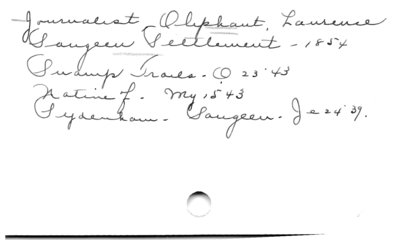 Journalist, Oliphant, Laurence
Saugeen Settlement - 1854
Swamp Trails - O 23 '43
Native L. - My 15 43
Sydenham - Saugeen - Je 24 '39.